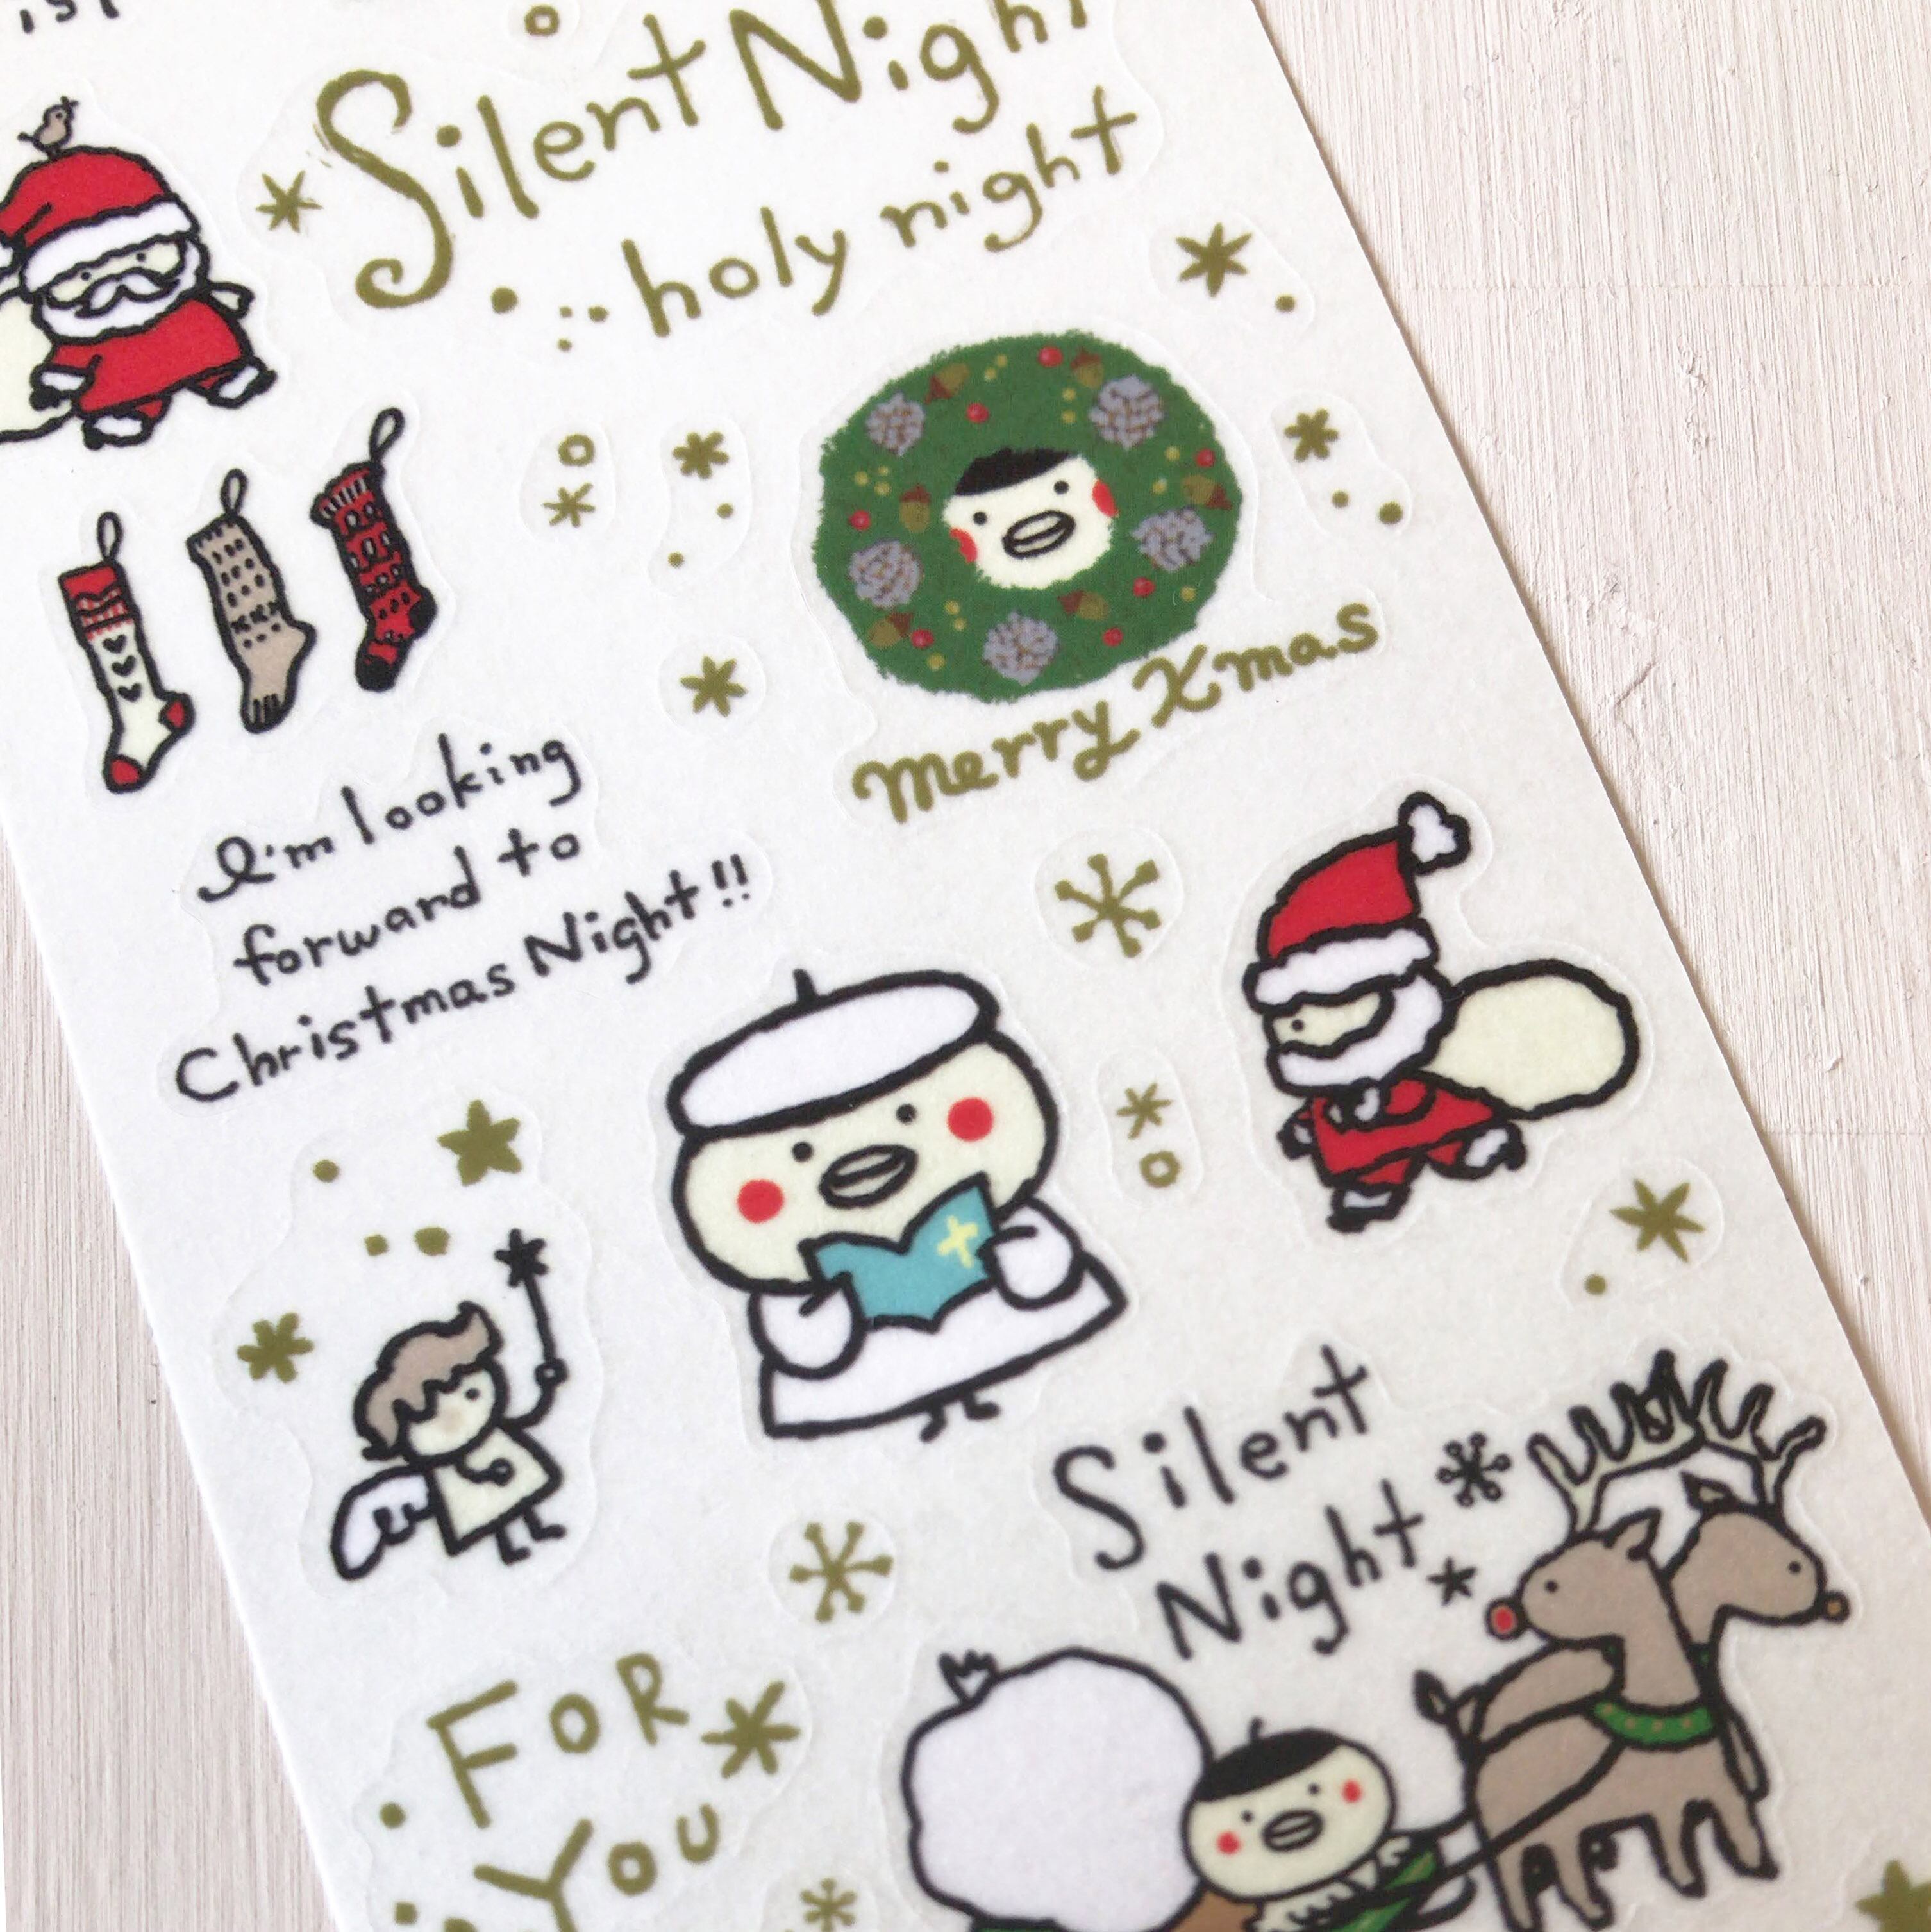 Silent Night
holy night
merry Xmas
I'm looking
forward to
Christmas Night!!
Silent
Night
FOR
You